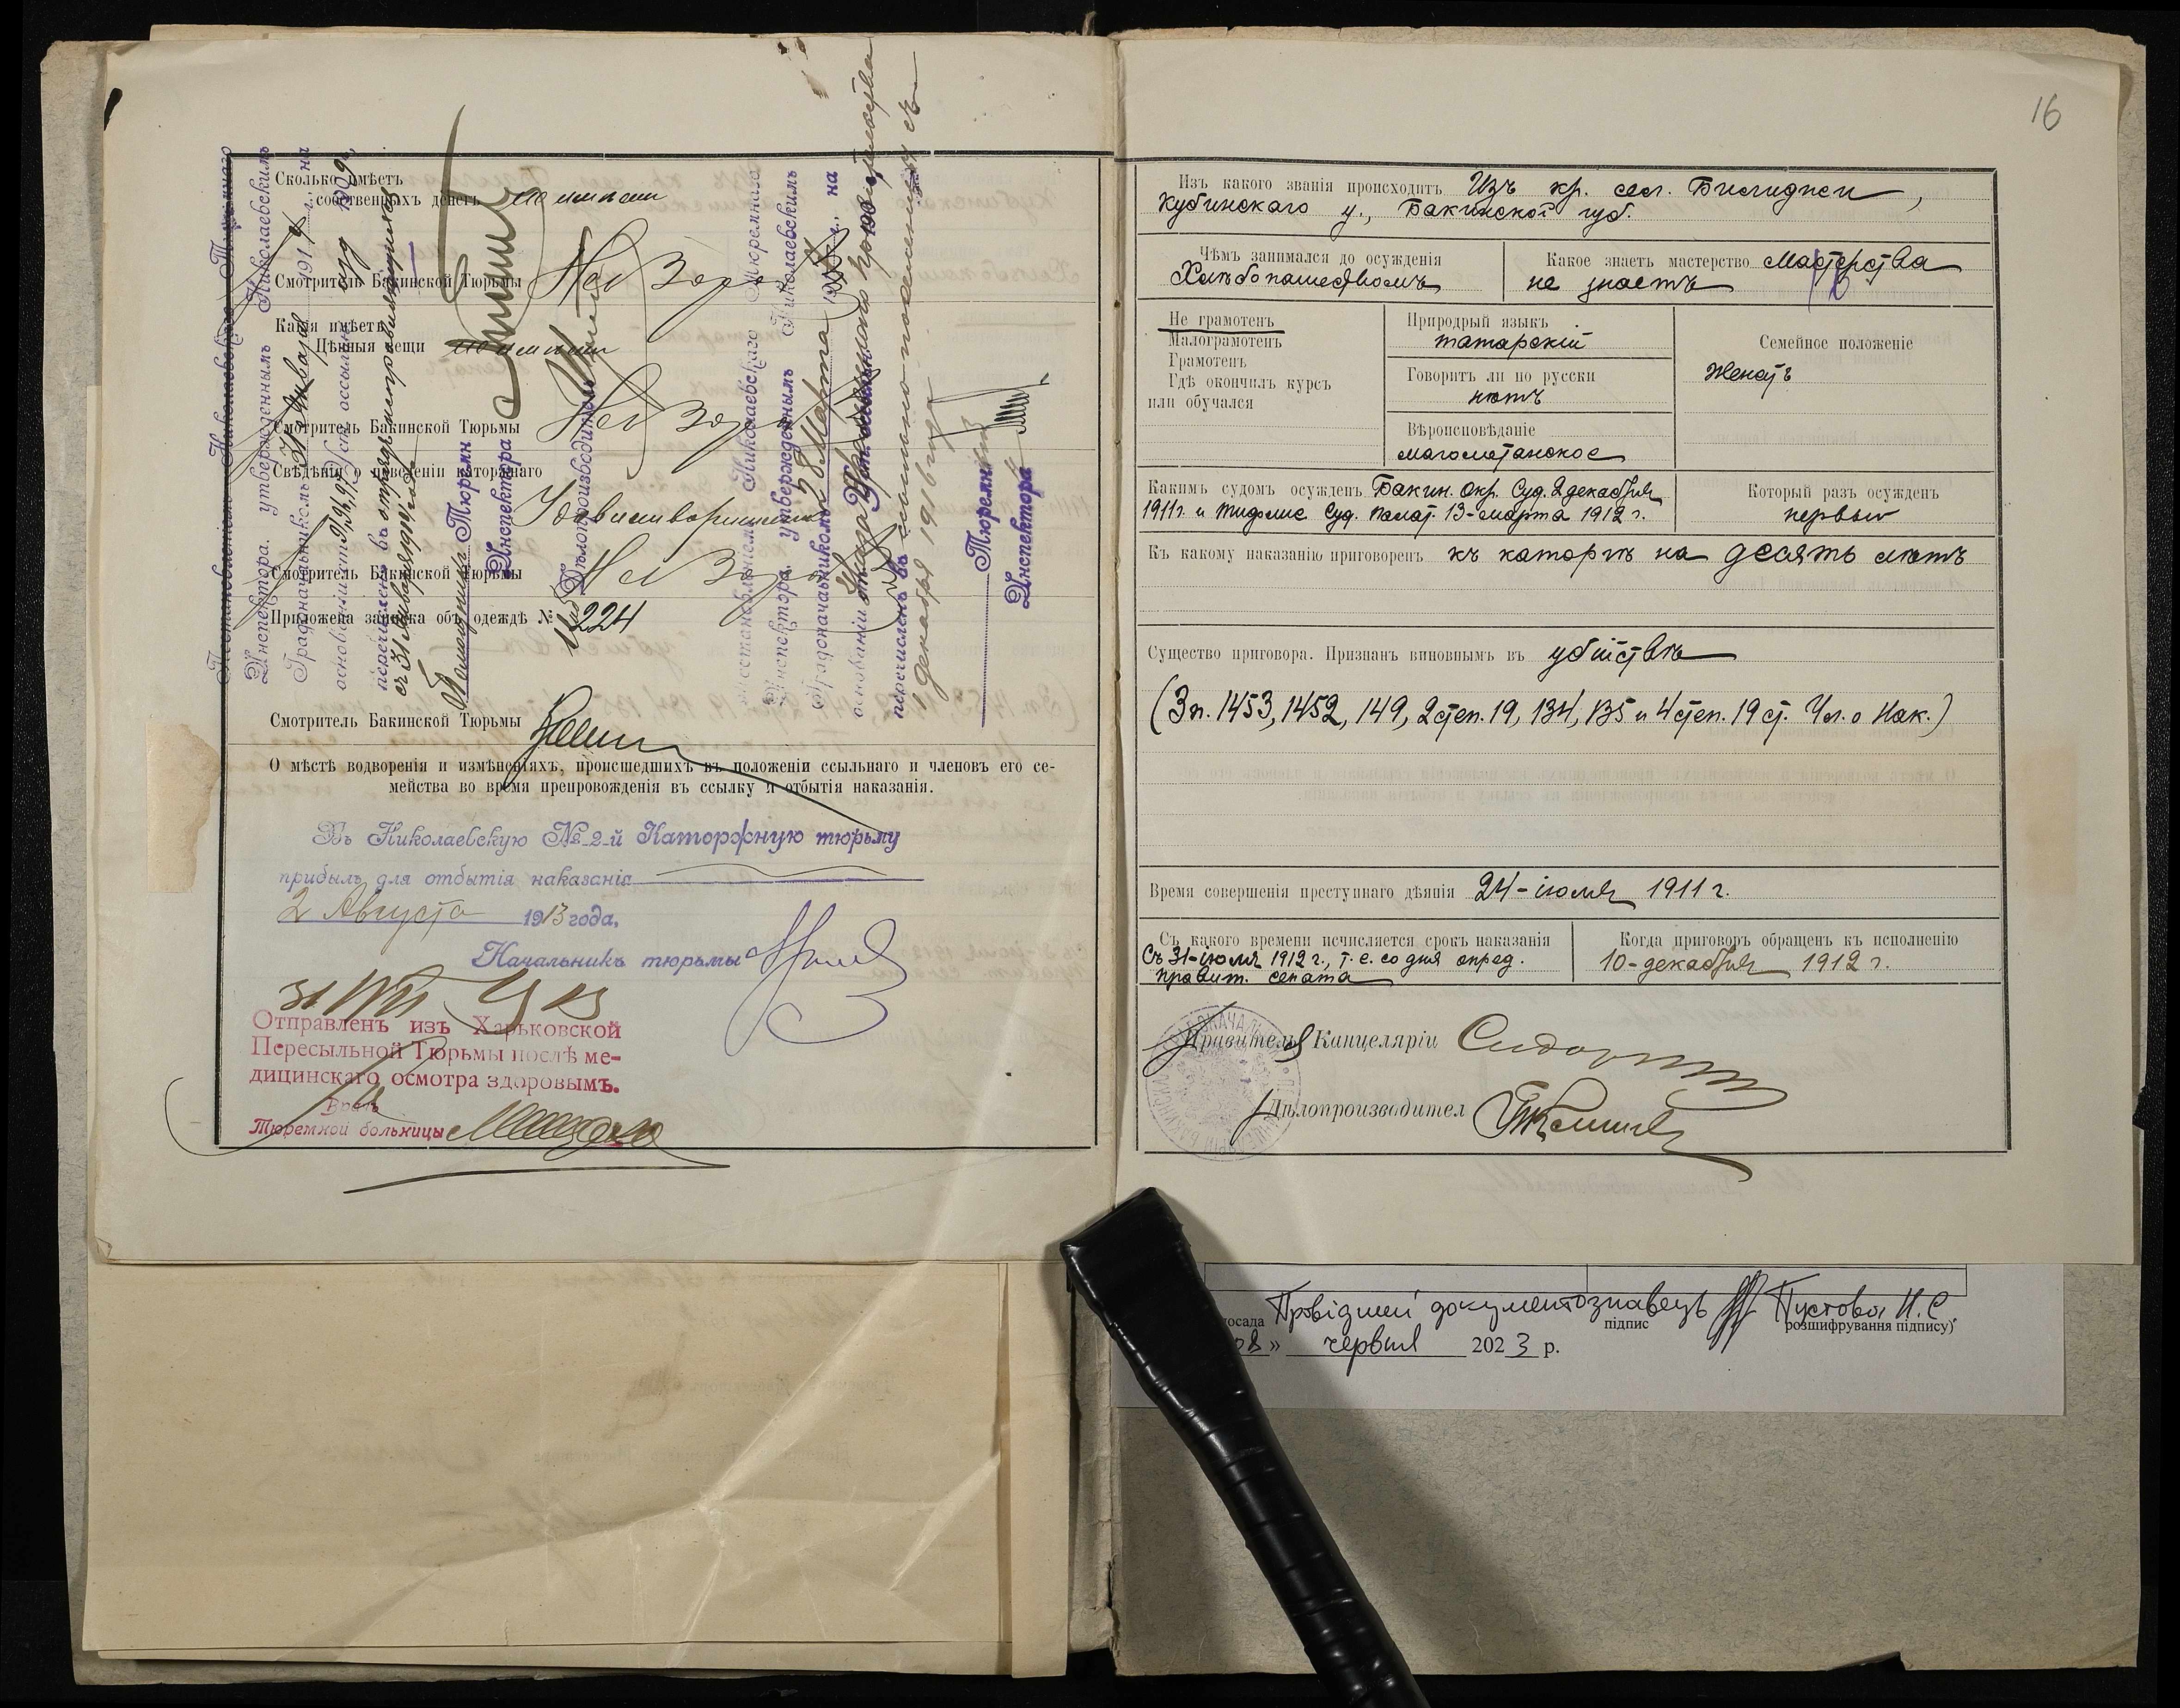 Сколько имѣетъ
собственныхъ денегъ не имѣетъ
Смотритель Бакинской Тюрьмы
Какія имѣетъ
Цѣнныя вещи не имѣетъ
Смотритель Бакинской Тюрьмы
Свѣдѣнія о поведеніи каторжнаго
Удовлетворительно
Смотритель Бакинской Тюрьмы
Приложена записка объ одеждѣ № 224
Смотритель Бакинской Тюрьмы
О мѣстѣ водворенія и измѣненіяхъ, происшедшихъ въ положеніи ссыльнаго и членовъ его се-
мейства во время препровожденія въ ссылку и отбытія наказанія.
Въ Николаевскую № 2-й Каторжную тюрьму
прибылъ для отбытія наказанія
2 Августа 1913 года.
Начальникъ тюрьмы
Отправленъ изъ Харьковской
Пересыльной Тюрьмы послѣ ме-
дицинскаго осмотра здоровымъ.
Врачъ
Тюремной больницы
Постановленіемъ Николаевскаго Тюремнаго
Инспектора, утвержденнымъ Николаевскимъ
Градоначальникомъ Января 1914 г., на
основаніи ст. Уст. о ссыльн. изд. 1909 г.,
перечисленъ въ отрядъ исправляющихся
съ 31 Января 1914 года
Тюремн
Инспектора
Дѣлопроизводитель
Постановленіемъ Николаевскаго Тюремнаго
Инспектора, утвержденнымъ Николаевскимъ
Градоначальникомъ 8 Марта на
основаніи
перечисленъ въ ссыльно-поселенцы съ
1 декабря 1916 года
Тюремн
Инспектора
16
Изъ какого званія происходитъ Изъ кр. сел. Билиджи,
Кубинскаго у., Бакинской губ.
Чѣмъ занимался до осужденія
Хлѣбопашествомъ
Какое знаетъ мастерство Мастерства
не знаетъ
Не грамотенъ
Малограмотенъ
Грамотенъ
Гдѣ окончилъ курсъ
или обучался
Природный языкъ
татарскій
Говоритъ ли по русски
нѣтъ
Вѣроисповѣданіе
магометанское
Семейное положеніе
Женатъ
Какимъ судомъ осужденъ Бакин. Окр. Суд. 2 декабря
1911 г. и Тифлис. Суд. Палат. 13-марта 1912 г.
Который разъ осужденъ
первый
Къ какому наказанію приговоренъ къ каторгѣ на десять лѣтъ
Существо приговора. Признанъ виновнымъ въ убійствѣ
(3 п. 1453, 1452, 149, 2 степ. 19, 134, 135 и 4 степ. 19 ст. Ул. о Нак.)
Время совершенія преступнаго дѣянія 24-іюля 1911 г.
Съ какого времени исчисляется срокъ наказанія
Съ 31-іюля 1912 г., т. е. со дня опред.
правит. сената
Когда приговоръ обращенъ къ исполненію
10-декабря 1912 г.
Правитель Канцеляріи
Дѣлопроизводител
посада Провідний документознавець підпис Пустова Н. С.
розшифрування підпису)
08» червня 2023 р.